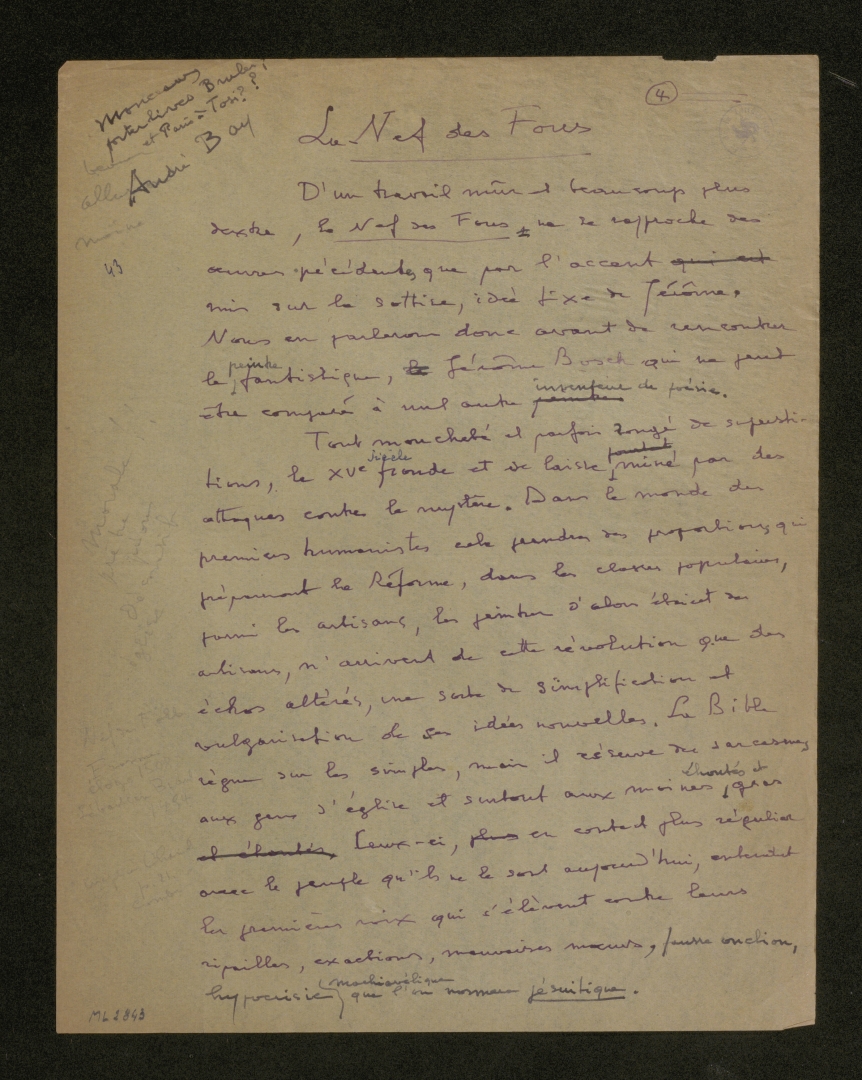 4
Monceaux
André Bay
43
La Nef des Fous
D'un travail mûr et beaucoup plus
dextre, la Nef des Fous ne se rapproche des
œuvres précédentes que par l'accent qui est
mis sur la sottise, idée fixe de Jérôme.
Nous en parlerons donc avant de rencontrer
le peintre fantistique, le Jérôme Bosch qui ne peut
être comparé à nul autre peintre inventeur de poésie.
Tout moucheté et parfois rongé de supersti-
tions, le XVe siècle fronde et se laisse partout miné par des
attaques contre le mystère. Dans le monde des
premiers humanistes cela prendra des proportions qui
prépareront la Réforme, dans les classes populaires,
parmi les artisans, les peintres d'alors étaient des
artisans, n'arrivent de cette révolution que des
échos altérés, une sorte de simplification et
vulgarisation de ses idées nouvelles. La Bible
règne sur les simples, mais il réserve des sarcasmes
aux gens d'église et surtout aux moines éhontés et gras
et éhontés. Ceux-ci, plus en contact plus régulier
avec le peuple qu'ils ne le sont aujourd'hui, entendent
les premières voix qui s'élèvent contre leurs
ripailles, exactions, mauvaises mœurs, fausse onction,
hypocrisie machiavélique que l'on nommera jésuitique.
ML 2843